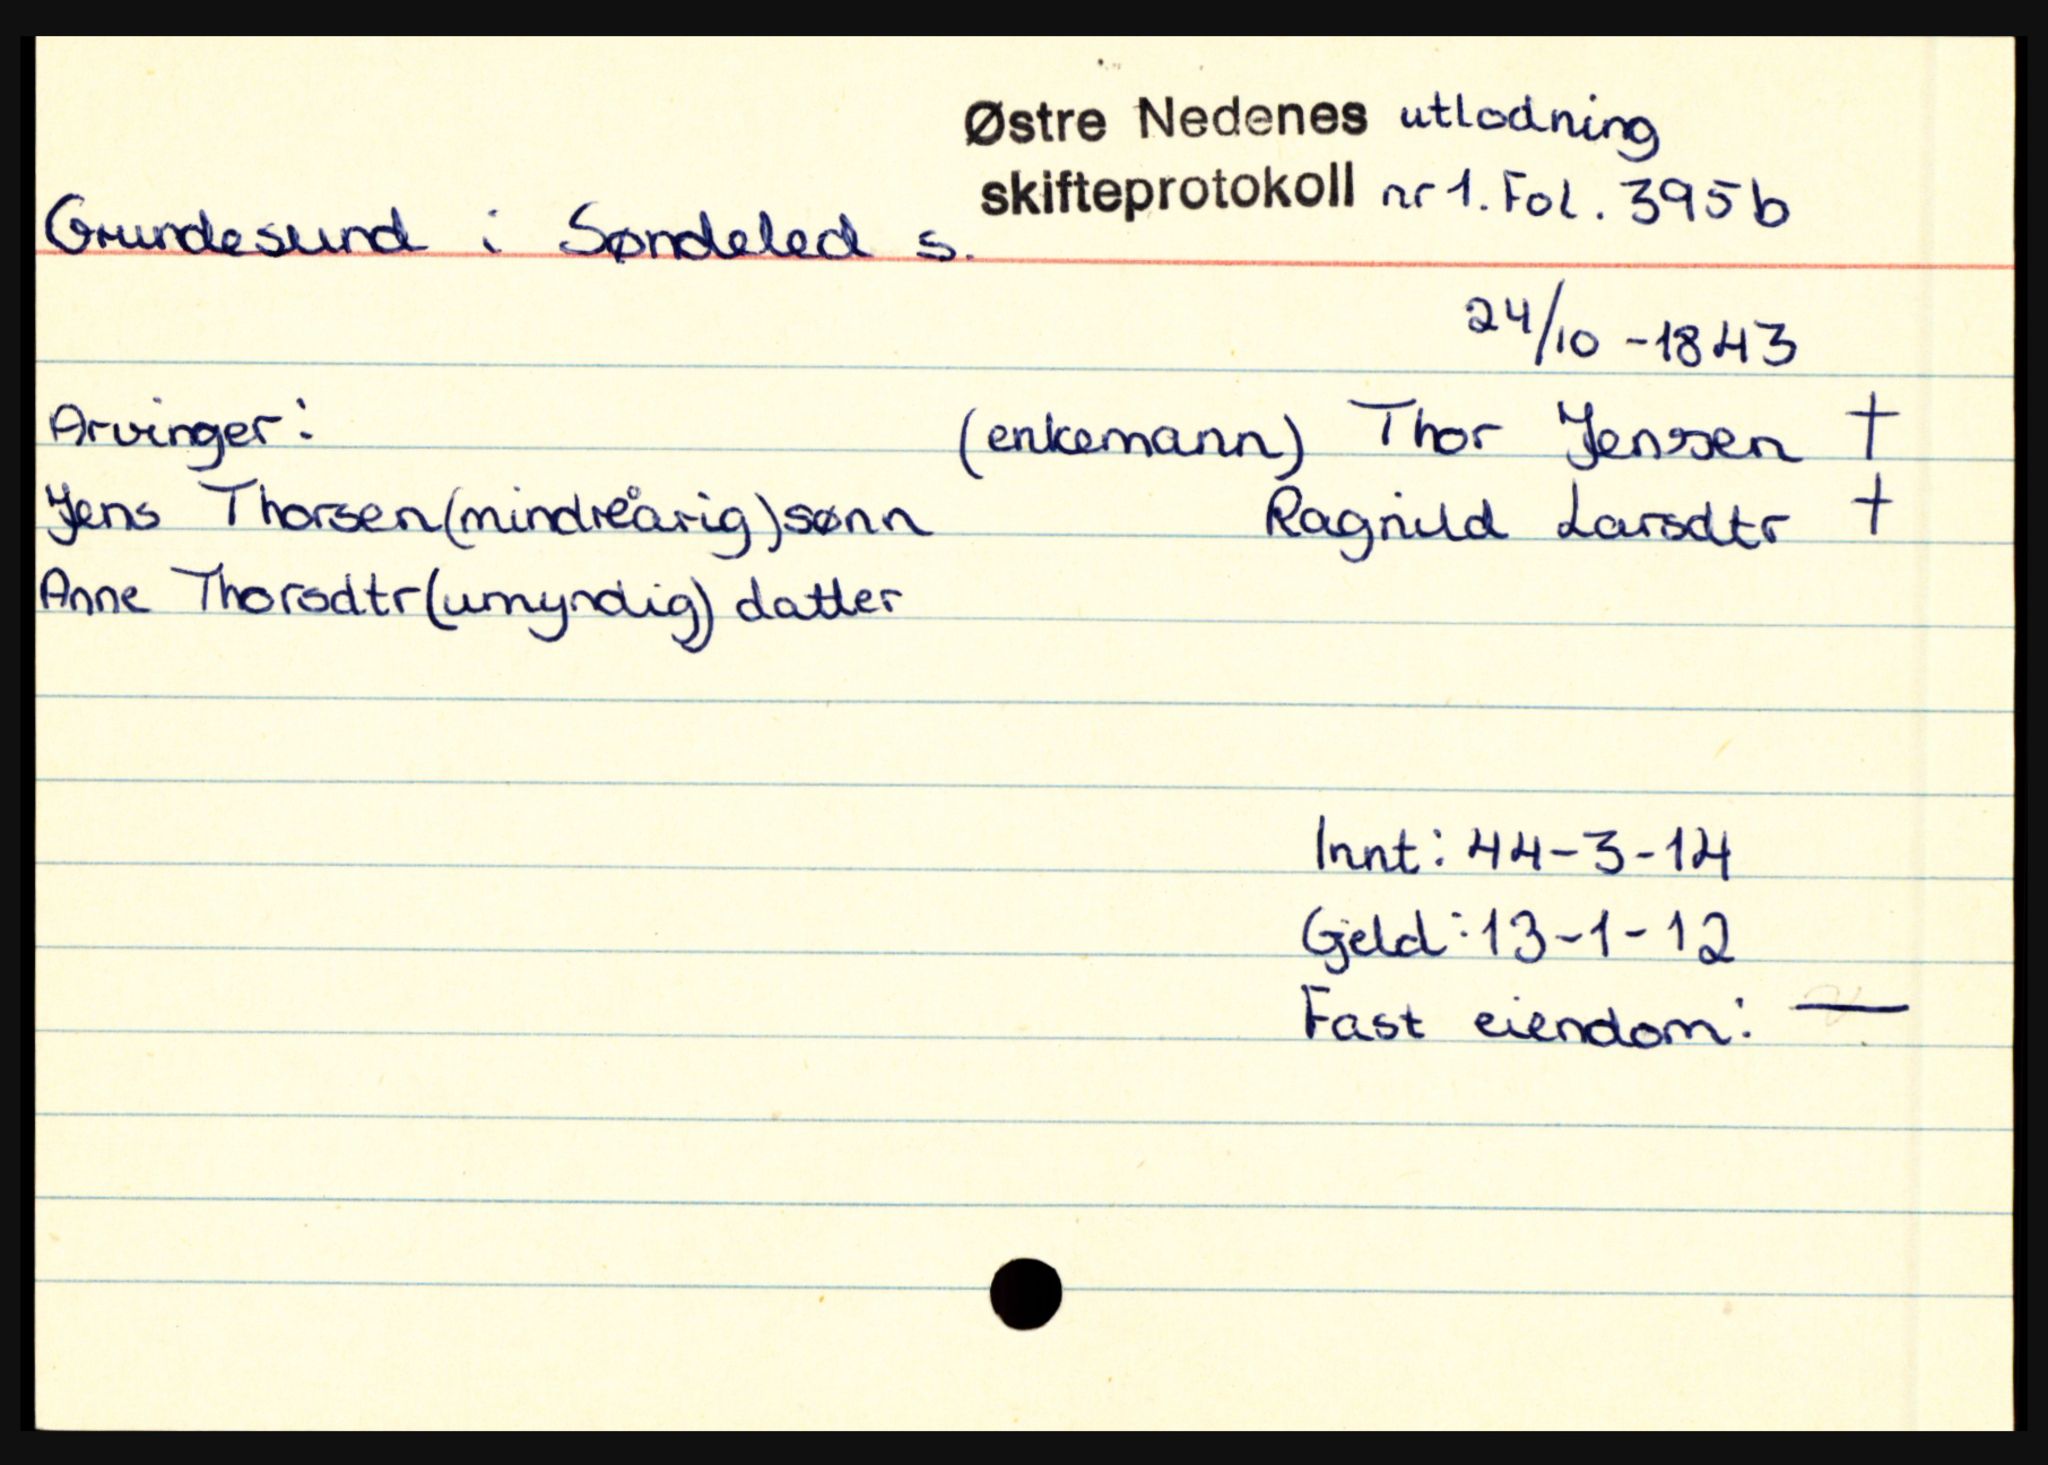 Østre Nedenes utlodning
skifteprotokoll nr 1. Fol. 395b
Grundesund i Søndeled s.
24/10 - 1843
Arvinger: (enkemann) Thor Jenssen †
Jens Thorsen (mindreårig) sønn Ragnild Larsdtr †
Anne Thorsdtr (umyndig) datter
Innt: 44-3-14
Gjeld: 13-1-12
Fast eiendom: —